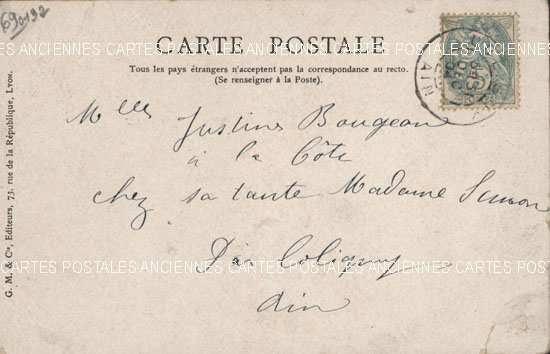 69 0192
CARTES POSTALES ANCIENNES CARTES POSTALES ANCIENNES CARTES POSTALES
CARTE POSTALE
Tous les pays étrangers n'acceptent pas la correspondance au recto.
(Se renseigner à la Poste.)
AIN
Mlles Justine Bougeau
à la Côte
chez sa tante Madame Simon
Par Coligny
Ain
G. M. & Cie, Editeurs, 73, rue de la République, Lyon.
CARTES POSTALES ANCIENNES CARTES POSTALES ANCIENNES CARTES POSTALES